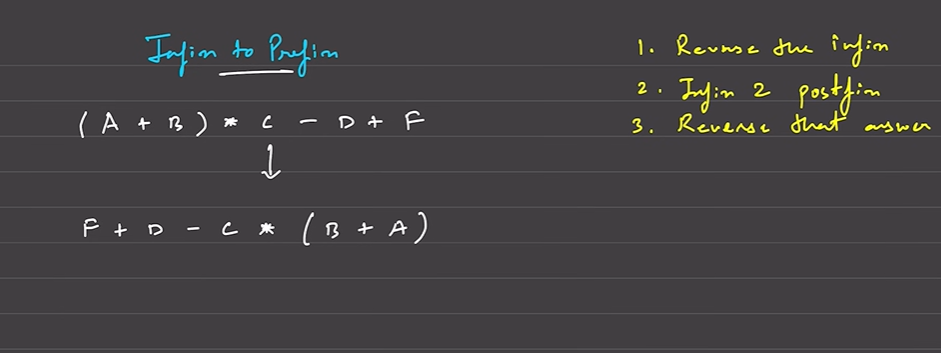 Infix to Prefix
(A + B) * C - D + F
↓
F + D - C * (B + A)
1. Reverse the infix
2. Infix 2 postfix
3. Reverse that answer